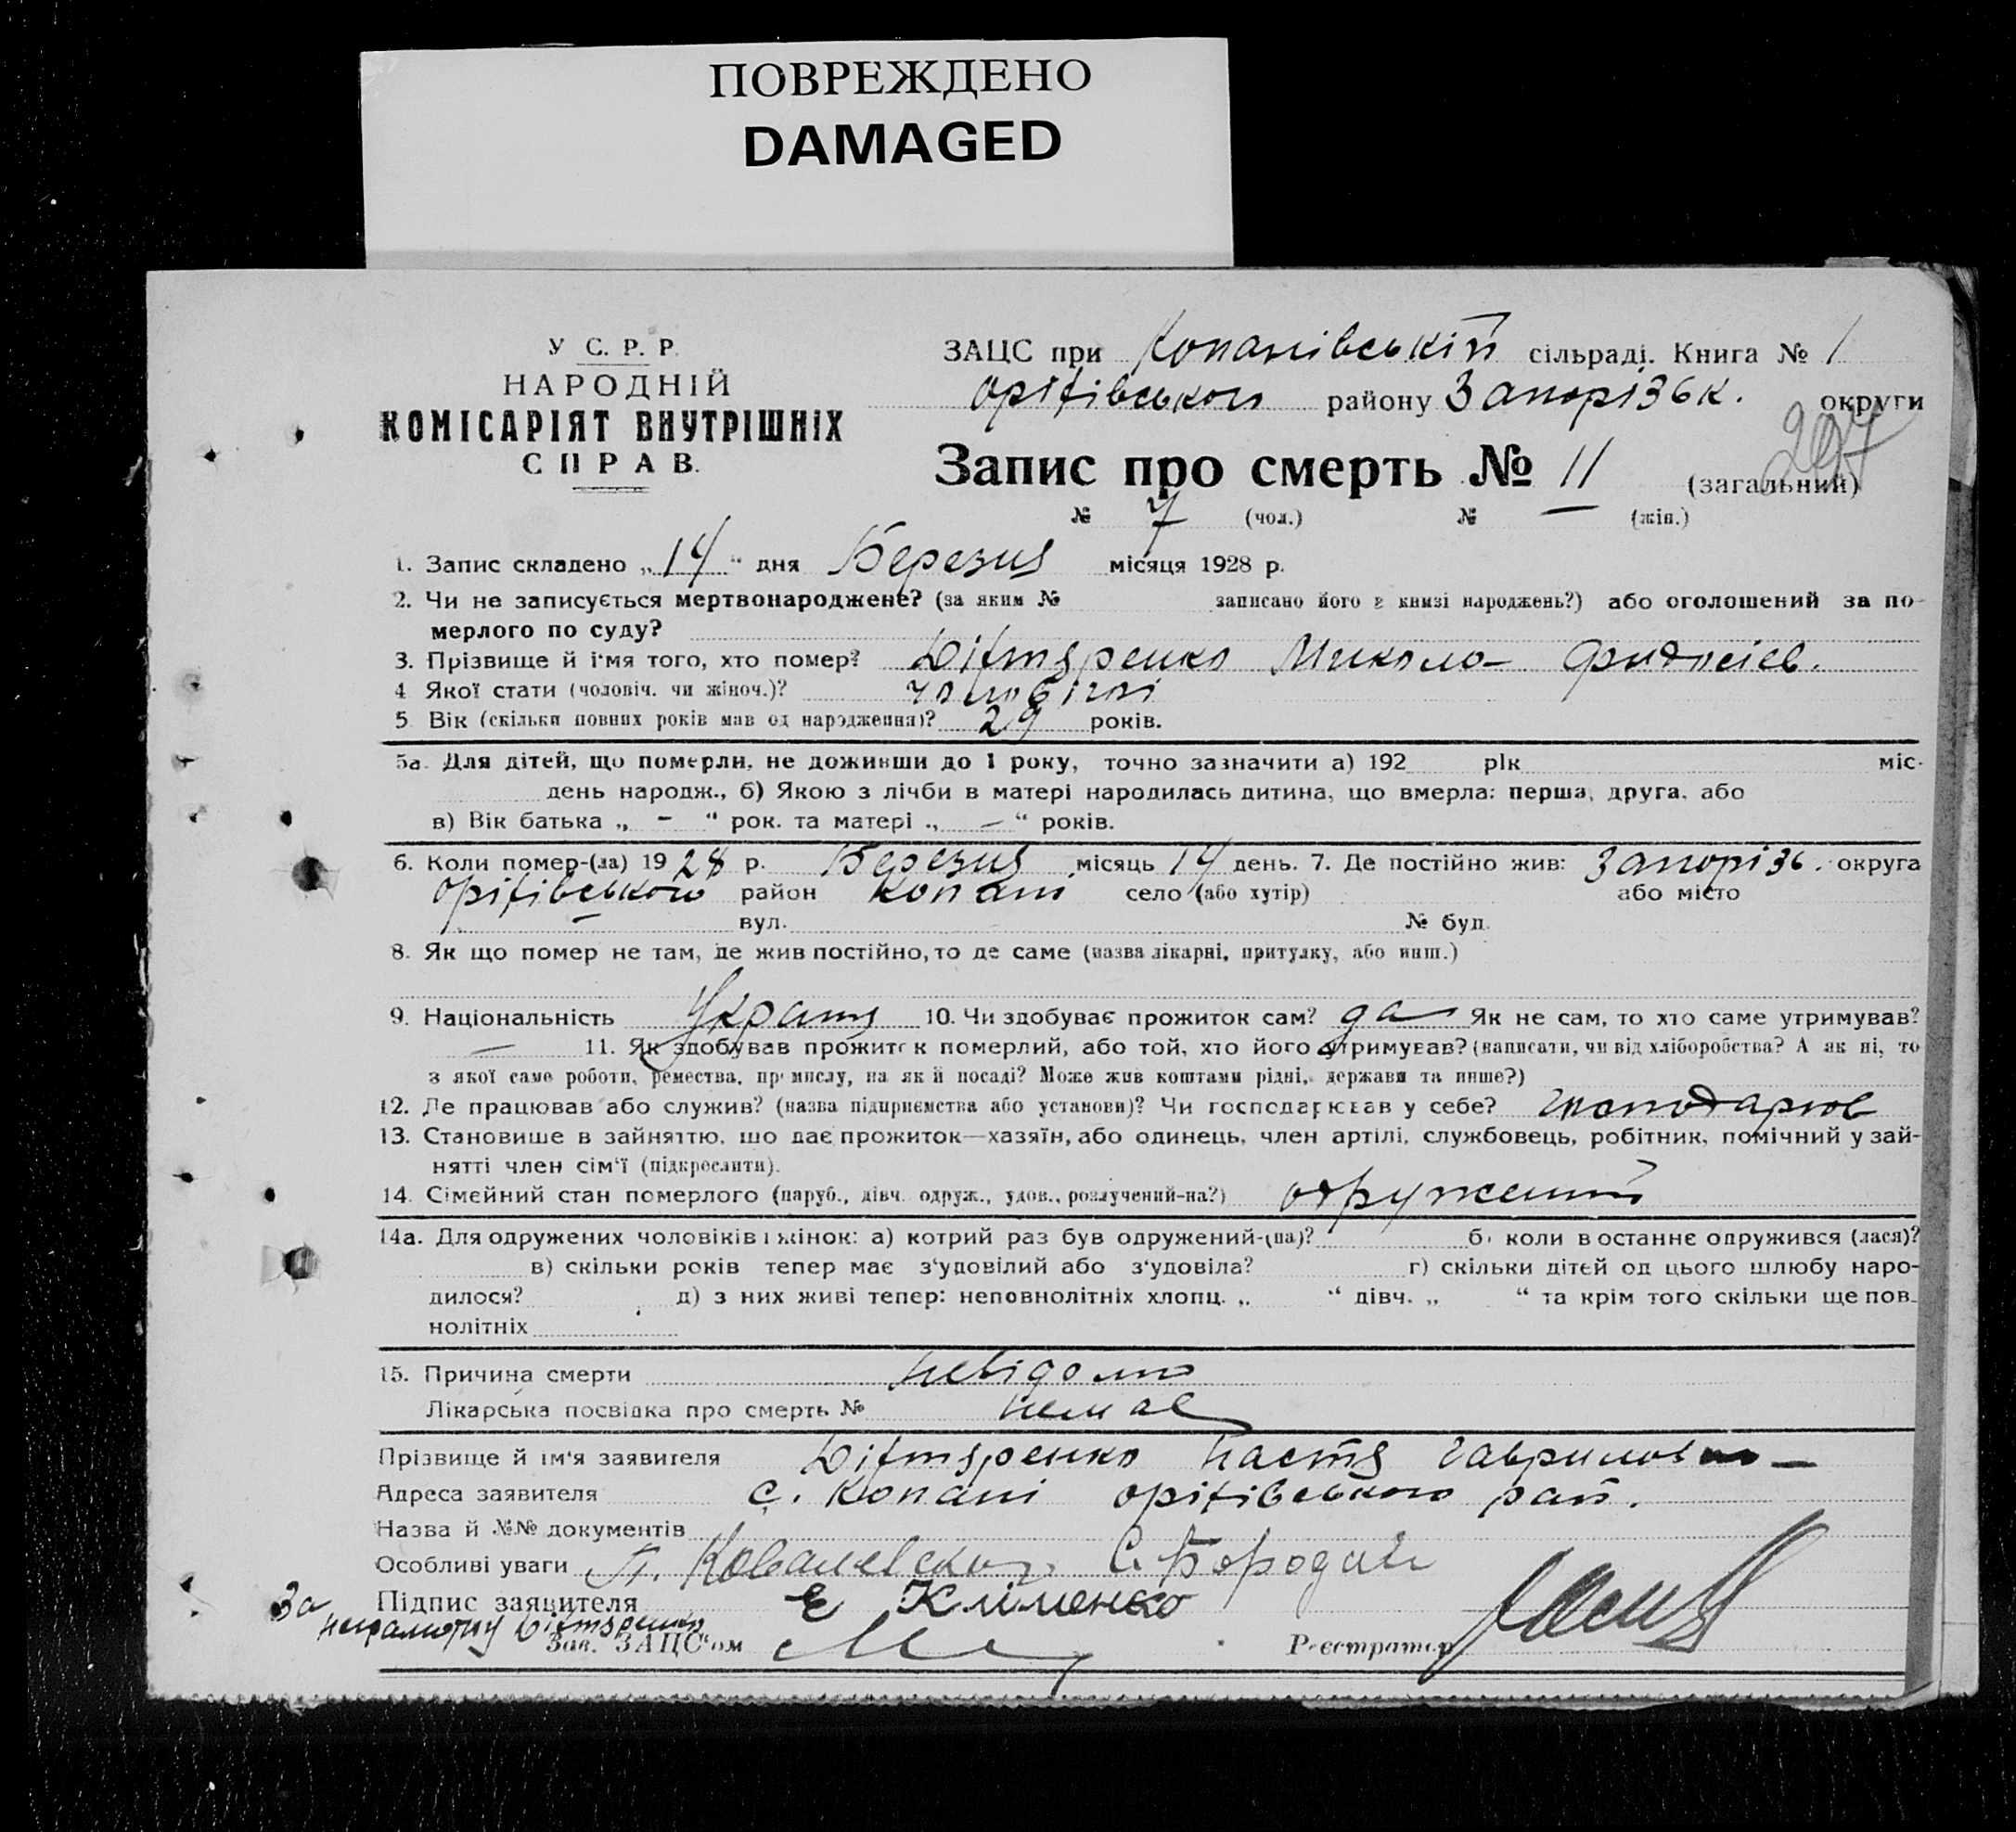 ПОВРЕЖДЕНО
DAMAGED
У С. Р. Р.
НАРОДНІЙ
КОМІСАРІЯТ ВНУТРІШНІХ
СПРАВ.
ЗАЦС при Копанівській сільраді. Книга № 1
Оріхівського району Запорізьк. округи
207
Запис про смерть № 11 (загальний)
№ 7 (чол.) № — (жін.)
1. Запис складено „14“ дня Березня місяця 1928 р.
2. Чи не записується мертвонароджене? (за яким № записано його в книзі народжень?) або оголошений за по-
мерлого по суду?
3. Прізвище й і'мя того, хто помер? Дігтяренко Микола Фидосіев.
4 Якої стати (чоловіч. чи жіноч.)? чоловічої
5 Вік (скільки повних років мав од народження)? 29 років.
5а. Для дітей, що померли, не доживши до 1 року, точно зазначити а) 192 рік міс.
день народж., б) Якою з лічби в матері народилась дитина, що вмерла: перша, друга, або
в) Вік батька „ - “ рок. та матері „ — “ років.
6. Коли помер-(ла) 1928 р. Березня місяць 14 день. 7. Де постійно жив: Запорізь. округа
Оріхівського район Копані село (або хутір) або місто
— вул. № буд.
8. Як що помер не там, де жив постійно, то де саме (назва лікарні, притулку, або инш.)
9. Національність Украінц 10. Чи здобуває прожиток сам? да Як не сам, то хто саме утримував?
— 11. Як здобував прожиток померлий, або той, хто його утримував? (написати, чи від хліборобства? А як ні, то
з якої саме роботи, ремества, промислу, на якій посаді? Може жив коштами рідні, держави та инше?)
12. Де працював або служив? (назва підприємства або установи)? Чи господарював у себе? господарюв
13. Становище в зайняттю, що дає прожиток—хазяїн, або одинець, член артілі, службовець, робітник, помічний у зай-
нятті член сім'ї (підкреслити).
14. Сімейний стан померлого (паруб., дівч. одруж., удов., розлучений-на?) одружений
14а. Для одружених чоловіків і жінок: а) котрий раз був одружений-(на)? б) коли востаннє одружився (лася)?
в) скільки років тепер має з'удовілий або з'удовіла? г) скільки дітей од цього шлюбу наро-
дилося? д) з них живі тепер: неповнолітніх хлопц. „ “ дівч. „ “ та крім того скільки ще пов-
нолітніх
15. Причина смерти невідомо
Лікарська посвідка про смерть № немає
Прізвище й ім'я заявителя Дігтяренко Настя Гавриловна
Адреса заявителя с. Копані Оріхівського рай.
Назва й №№ документів
Особливі уваги П. Ковалевский С. Бородай
Підпис заявителя Е Кліменко
За неграмотну Дігтяренко
Зав. ЗАЦС'ом
Реєстратор